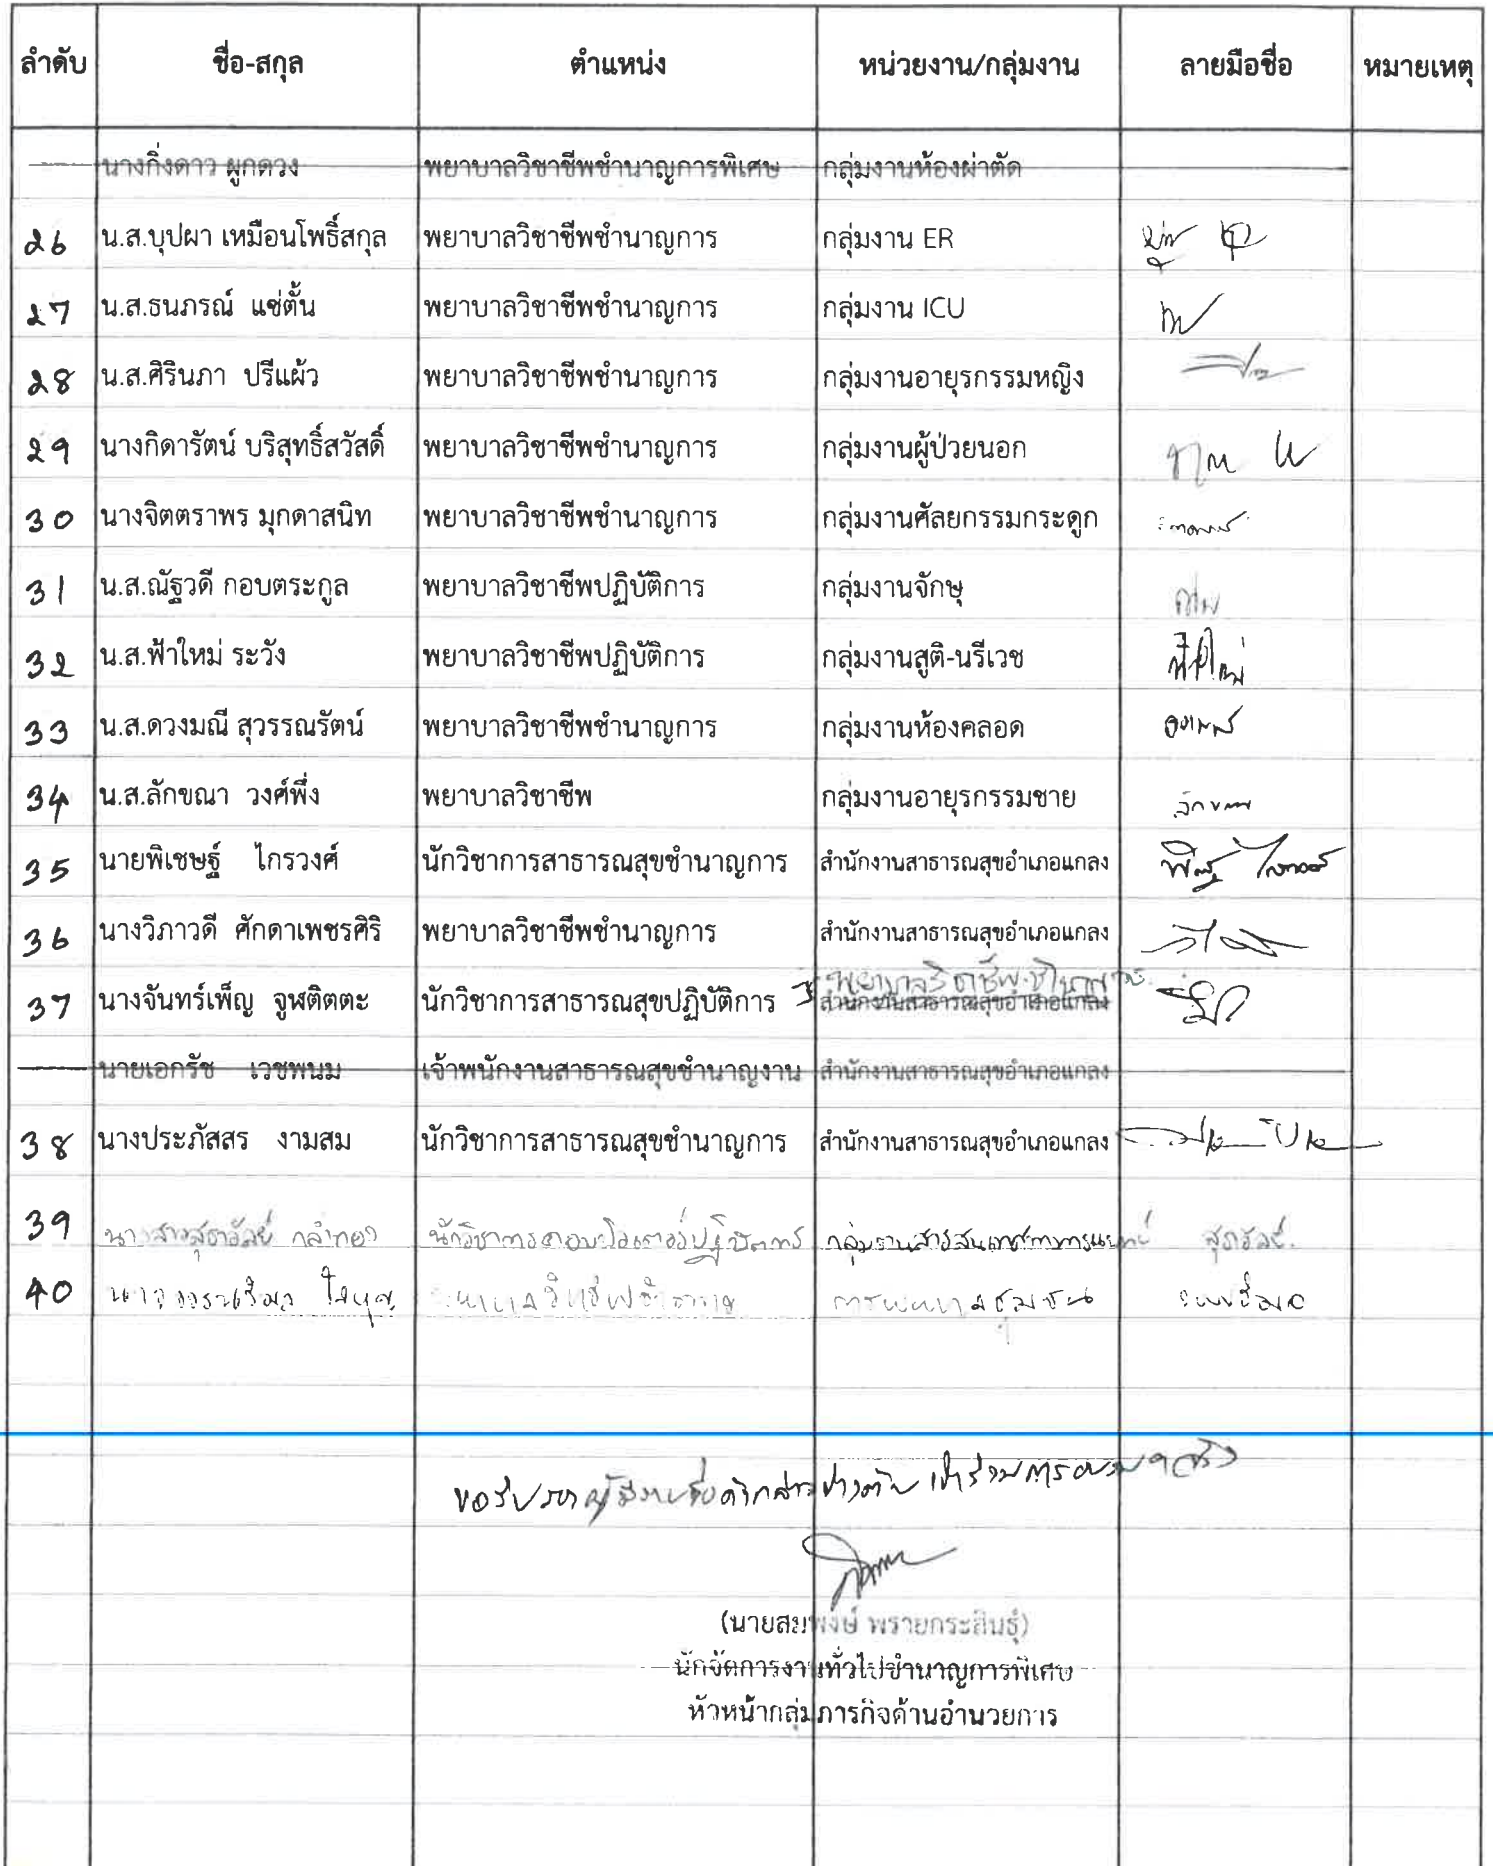 ลำดับ ชื่อ-สกุล ตำแหน่ง หน่วยงาน/กลุ่มงาน ลายมือชื่อ หมายเหตุ
นางกิ่งดาว ผูกดวง พยาบาลวิชาชีพชำนาญการพิเศษ กลุ่มงานห้องผ่าตัด
26 น.ส.บุปผา เหมือนโพธิ์สกุล พยาบาลวิชาชีพชำนาญการ กลุ่มงาน ER
27 น.ส.ธนภรณ์ แซ่ตั้น พยาบาลวิชาชีพชำนาญการ กลุ่มงาน ICU
28 น.ส.ศิรินภา ปรีแผ้ว พยาบาลวิชาชีพชำนาญการ กลุ่มงานอายุรกรรมหญิง
29 นางกิดารัตน์ บริสุทธิ์สวัสดิ์ พยาบาลวิชาชีพชำนาญการ กลุ่มงานผู้ป่วยนอก
30 นางจิตตราพร มุกดาสนิท พยาบาลวิชาชีพชำนาญการ กลุ่มงานศัลยกรรมกระดูก
31 น.ส.ณัฐวดี กอบตระกูล พยาบาลวิชาชีพปฏิบัติการ กลุ่มงานจักษุ
32 น.ส.ฟ้าใหม่ ระวัง พยาบาลวิชาชีพปฏิบัติการ กลุ่มงานสูติ-นรีเวช ฟ้าใหม่
33 น.ส.ดวงมณี สุวรรณรัตน์ พยาบาลวิชาชีพชำนาญการ กลุ่มงานห้องคลอด
34 น.ส.ลักขณา วงศ์พึ่ง พยาบาลวิชาชีพ กลุ่มงานอายุรกรรมชาย ลักขณา
35 นายพิเชษฐ์ ไกรวงศ์ นักวิชาการสาธารณสุขชำนาญการ สำนักงานสาธารณสุขอำเภอแกลง
36 นางวิภาวดี ศักดาเพชรศิริ พยาบาลวิชาชีพชำนาญการ สำนักงานสาธารณสุขอำเภอแกลง
พยาบาลวิชาชีพชำนาญการ
37 นางจันทร์เพ็ญ จูฬติตตะ นักวิชาการสาธารณสุขปฏิบัติการ สำนักงานสาธารณสุขอำเภอแกลง
นายเอกรัช เวชพนม เจ้าพนักงานสาธารณสุขชำนาญงาน สำนักงานสาธารณสุขอำเภอแกลง
38 นางประภัสสร งามสม นักวิชาการสาธารณสุขชำนาญการ สำนักงานสาธารณสุขอำเภอแกลง
39 นางสาวสุธาวัลย์ กล้าทอง นักวิชาการคอมพิวเตอร์ปฏิบัติการ กลุ่มงานสารสนเทศทางการแพทย์ สุธาวัลย์
40 พยาบาลวิชาชีพชำนาญ การพยาบาลชุมชน
ขอรับรองผู้มีรายชื่อดังกล่าวข้างต้น เข้าร่วมการอบรมฯ จริง
(นายสมพงษ์ พรายกระสินธุ์)
นักจัดการงานทั่วไปชำนาญการพิเศษ
หัวหน้ากลุ่มภารกิจด้านอำนวยการ